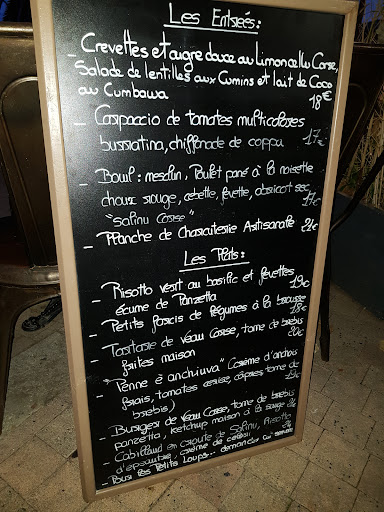 Les Entrées:
- Crevettes et aigre douce au Limoncellu Corse,
Salade de lentilles aux Cumins et lait de Coco
au Cumbawa 18€
- Carpaccio de tomates multicolores
burratina, chiffonade de coppa 17€
- Boul: mesclun, Poulet pané à la noisette
choux rouge, cebette, fevette, abricot sec
"Salinu Corse" 17€
- Planche de Charcuterie Artisanale 24€
Les Plats:
- Risotto vert au basilic et fevettes
écume de Panzetta 19€
- Petits farcis de légumes à la brousse 18€
- Tartare de veau Corse, tome de brebis
frites maison 20€
- "Penne è anchiuva" Crème d'anchois
frais, tomates cerise, câpres, tome de
brebis) 19€
- Burger de veau Corse, tome de brebis
panzetta, ketchup maison à la sauge
- Cabillaud en croute de Salinu, Risotto
d'epeautre, crème de céleri
- Pour Les Petits Loups...